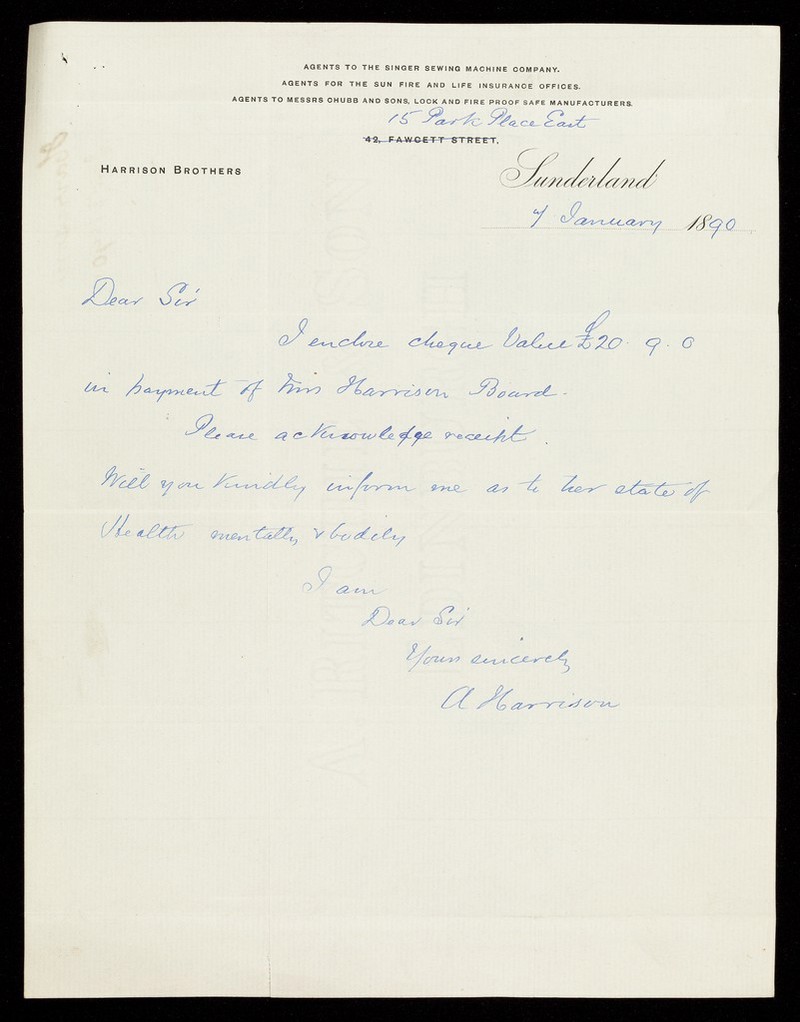 AGENTS TO THE SINGER SEWING MACHINE COMPANY.
AGENTS FOR THE SUN FIRE AND LIFE INSURANCE OFFICES.
AGENTS TO MESSRS CHUBB AND SONS, LOCK AND FIRE PROOF SAFE MANUFACTURERS.
15 Park Place East
42, FAWCETT STREET,
HARRISON BROTHERS
Sunderland
7 January 1890
Dear Sir
I enclose cheque Value £20. 9. 0
in payment of Miss Harrison Board.
Please acknowledge receipt.
Will you kindly inform me as to her state of
Health mentally & bodily
I am
Dear Sir
Yours sincerely
A Harrison